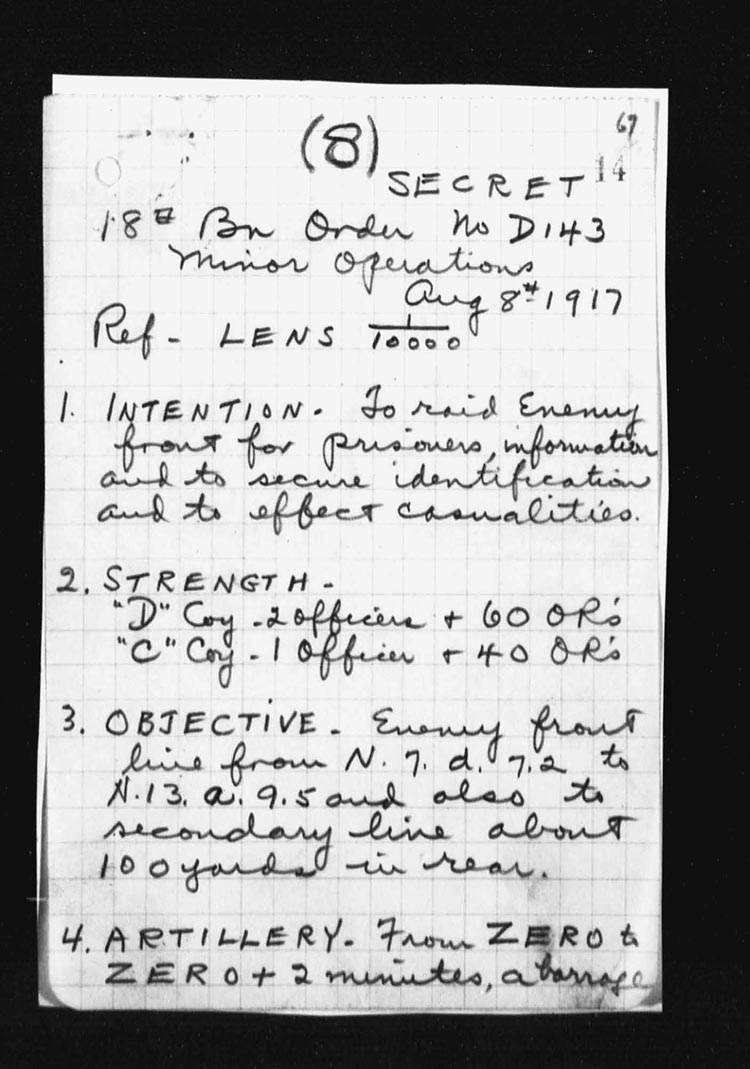 67
(8)
SECRET 14
18th Bn Order No D143
Minor Operations
Aug 8th 1917
Ref - LENS 1/10000
1. INTENTION. To raid Enemy
front for prisoners, information
and to secure identification
and to effect casualities.
2. STRENGTH -
"D" Coy - 2 officers + 60 OR's
"C" Coy - 1 Officer + 40 OR's
3. OBJECTIVE - Enemy front
line from N. 7. d. 7.2 to
N.13. a. 9.5 and also to
secondary line about
100 yards in rear.
4. ARTILLERY. From ZERO to
ZERO + 2 minutes, a barrage